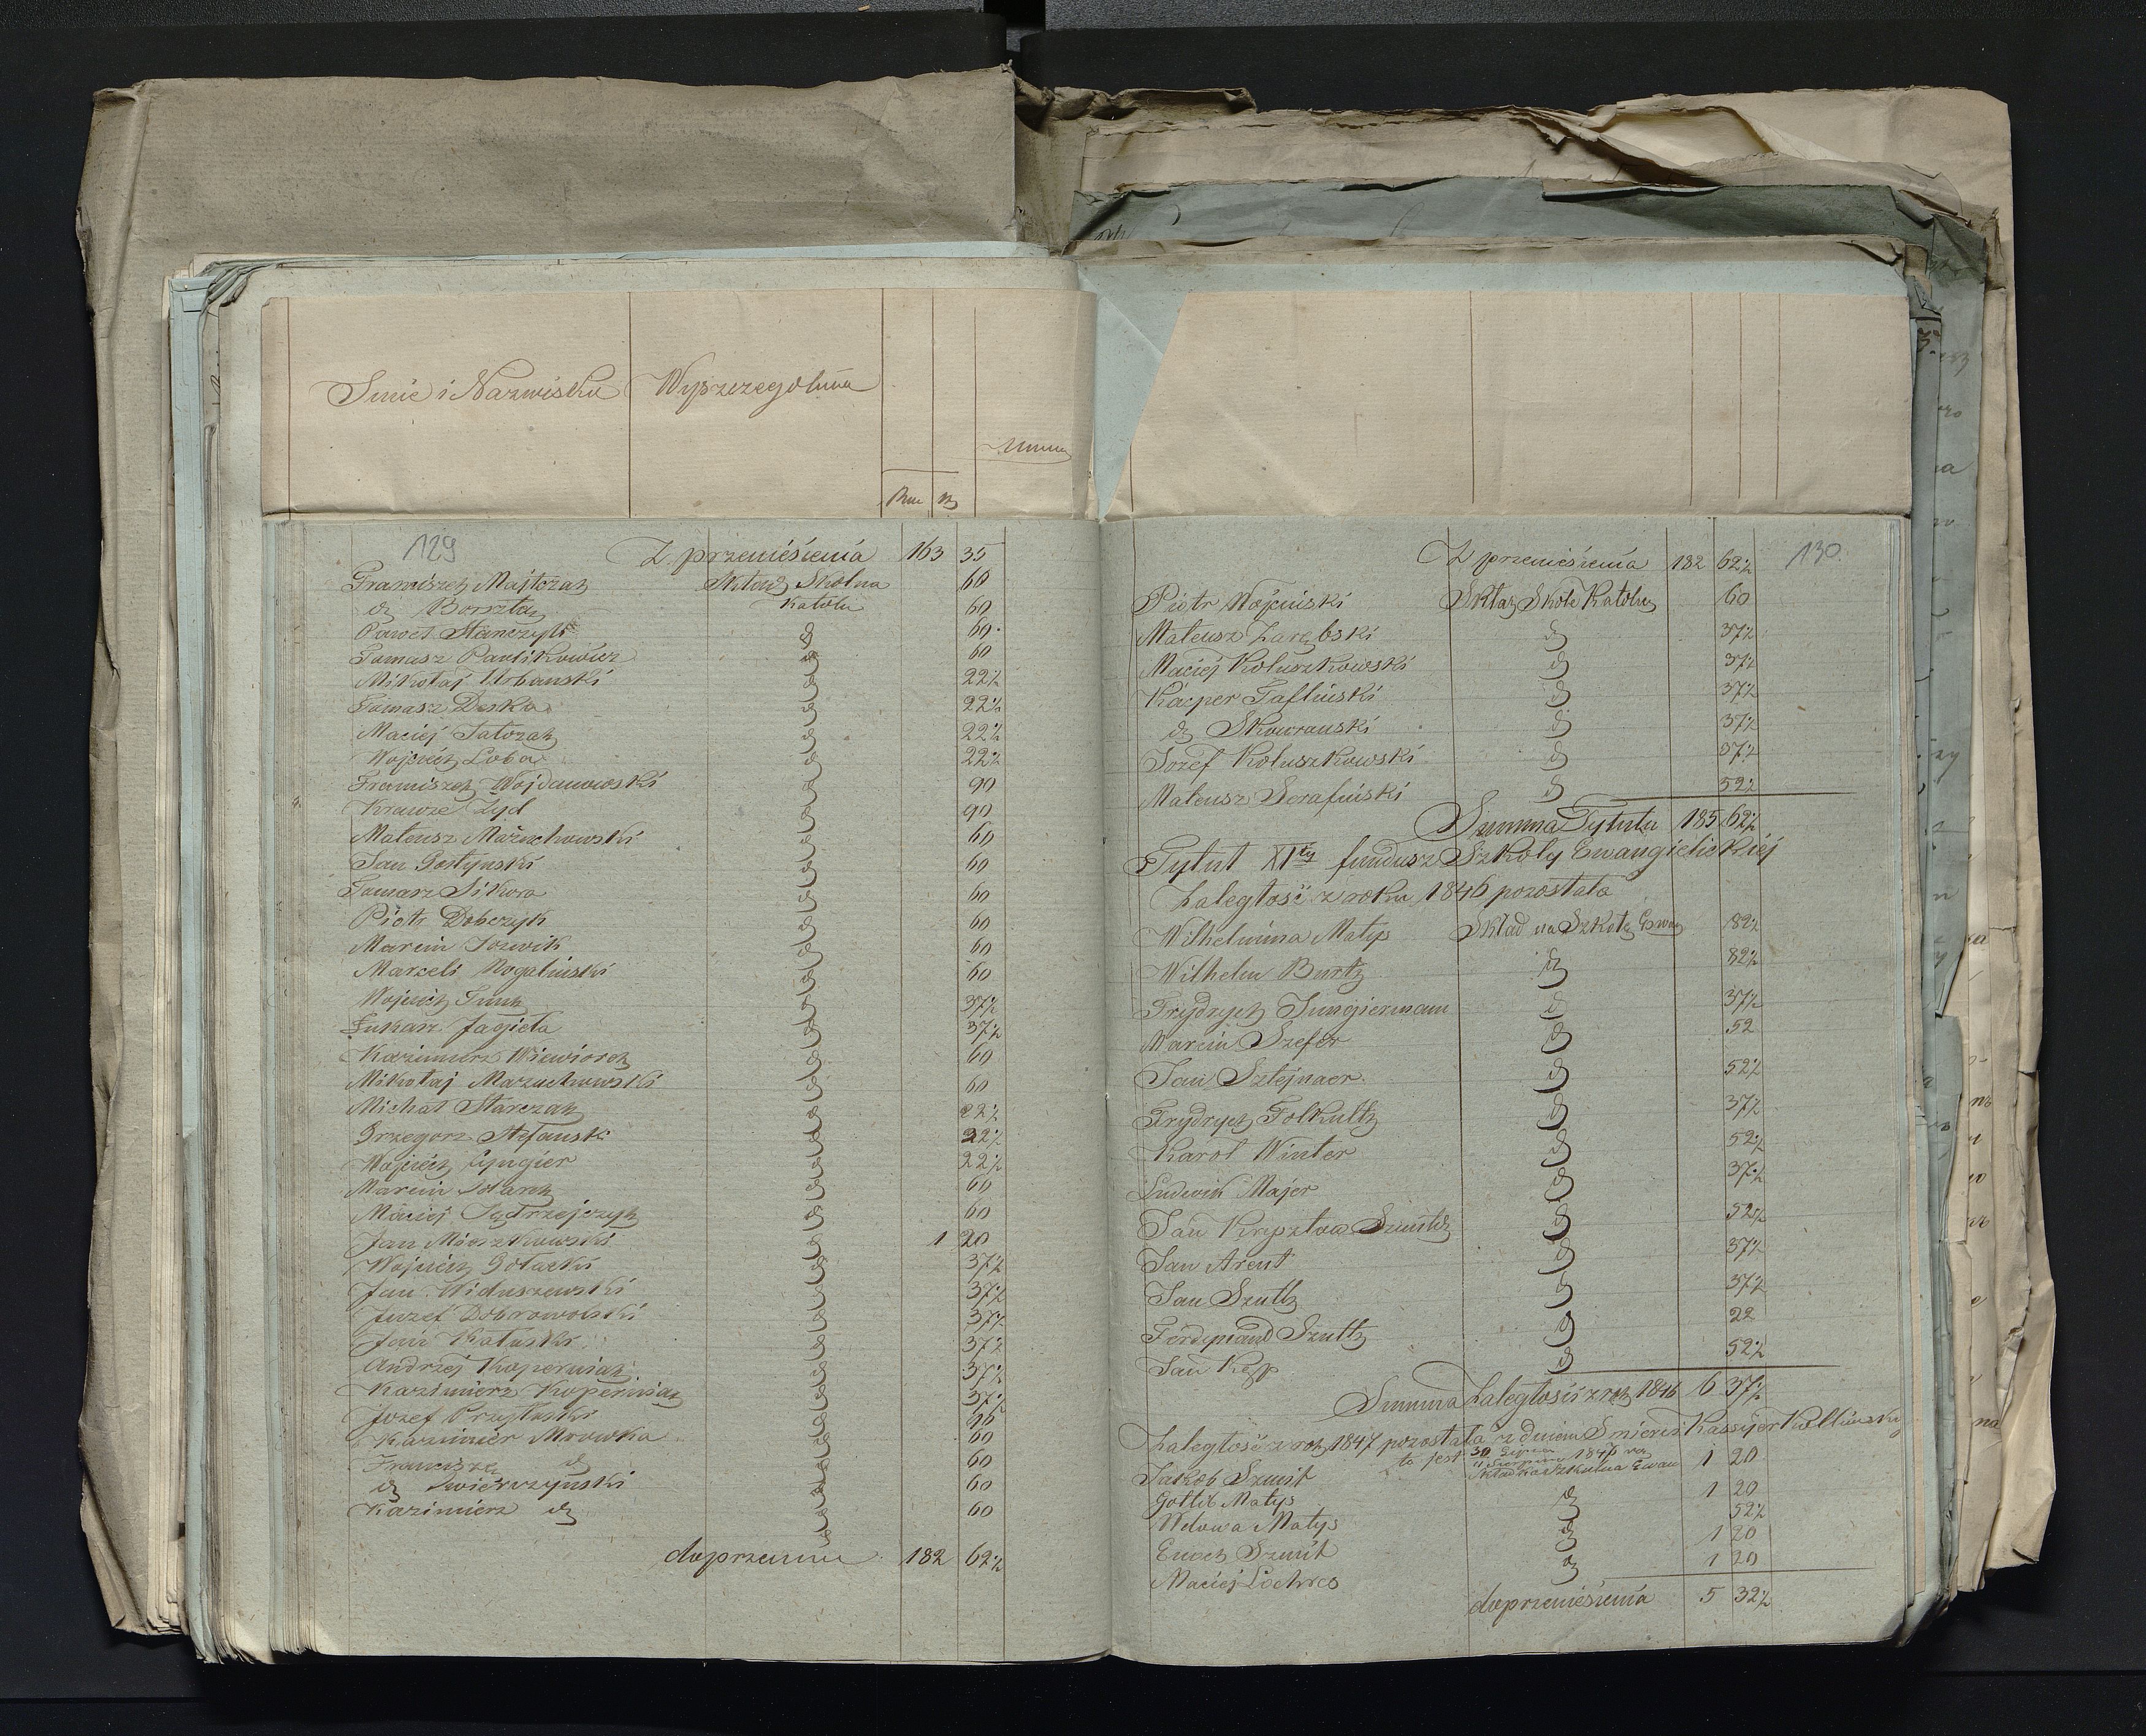 Imie i Nazwisko Wyszczegolnia
Summa
Rur k
129
Z przeniesienia 163 35
Franciszek Majtczak Skład Skolna 60
d Borsztaz Katolic 60
Paweł Stanczyk d 60
Tomasz Pawlikowicz d 60
Mikołaj Urbanski d 22½
Tomasz Deska d 22½
Maciej Tatczak d 22½
Wojciech Loba d 22½
Franciszek Wojdanowski d 90
Krauze Żyd d 90
Mateusz Mazuchowski d 60
Jan Gostynski d 60
Tomasz Sikora d 60
Piotr Dobczyk d 60
Marcin Jozwik d 60
Marceli Rogalinski d 60
Wojciech d 37½
Łukasz Jagieła d 37½
Kazimierz Wiewiorek d 60
Mikołaj Mazuchowski d 60
Michał Starczak d 22½
Grzegorz Stefanski d 22½
Wojciech Cyngier d 22½
Marcin Stolarek d 60
Maciej Jędrzejczyk d 60
Jan Mioszkowski d 1 20
Wojciech Gołaski d 37½
Jan Widuszewski d 37½
Juzef Dobrowolski d 37½
Jan Kałuski d 37½
Andrzej Koperniak d 37½
Kazimierz Koperniak d 37½
Jozef Przyłuski d
Kazimier Mrowka d 60
Franciszek d d 60
d Swierczynski d 60
Kazimierz d d 60
doprzeniesie 182 62½
130
Z przeniesienia 182 62½
Piotr Wojcinski Skład Skole Katolic 60
Mateusz Zarębski d 37½
Maciej Koluszkowski d 37½
Kacper Taflinski d 37½
d Skowranski d 37½
Jozef Koluszkowski d 37½
Mateusz Serafinski d 52½
Summa Tytułu 185 62½
Tytuł XIty fundusz Szkoły Ewangielickiej
Zaległość z roku 1846 pozostała
Wilhelmina Matys Skład na Szkołę Ewan 82½
Wilhelm Burtz d 82½
Frydrych Jungierman d 37½
Marcin Szefer d 52
Jan Sztejnaer d 52½
Frydrych Folkultz d 37½
Karol Winter d 52½
Ludwik Majer d 37½
Jan Krysztow Szultz d 52½
Jan Arent d 37½
Jan Szultz d 37½
Ferdynand Szultz d 22
Jan Kepp d 52½
Summa Zaległości z rok 1846 6 37½
Zaległość z rok 1847 pozostała z dniem Smierci Kassyer Kallinsky
to jest 30 1846 rok
Jakob Szmit Składka Szkulna Ewan 1 20
Gotlib Matys d 1 20
Wdowa Matys d 52½
Enoch Szmit d 1 20
Maciej d 1 20
doprzeniesienia 5 32½